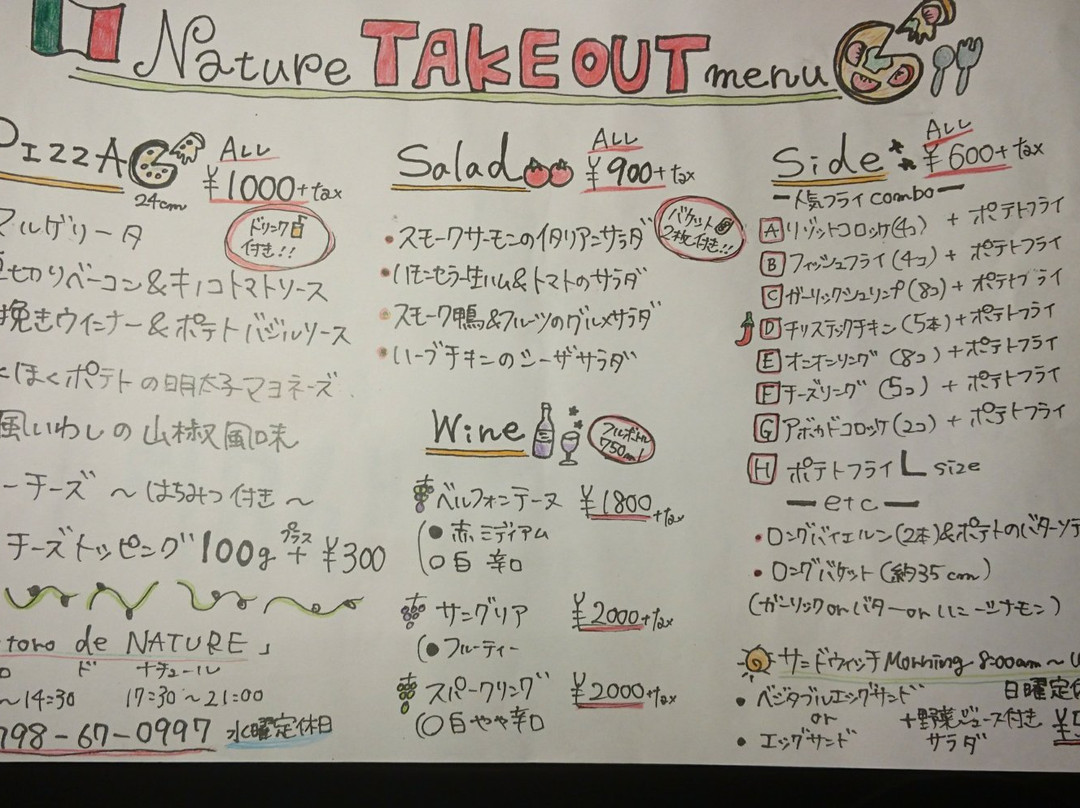 Nature TAKE OUT menu
PizzA
24cm
ALL
¥1000+tax
ドリンク
付き!!
マルゲリータ
切りベーコン&キノコトマトソース
挽きウインナー&ポテトバジルソース
ほくポテトの明太子マヨネーズ
風いわしの山椒風味
ーチーズ ～はちみつ付き～
チーズトッピング100g プラス + ¥300
toro de NATURE」
ド ナチュール
～14:30 17:30～21:00
798-67-0997 水曜定休日
Salad
ALL
¥900+tax
バケット
2枚付き!!
・スモークサーモンのイタリアンサラダ
・ハモンセラー生ハム&トマトのサラダ
・スモーク鴨&フルーツのグルメサラダ
・ハーブチキンのシーザサラダ
Wine
フルボトル
750ml
ベルフォンテーヌ ¥1800+tax
(●赤ミディアム
(○白 辛口
サングリア ¥2000+tax
(●フルーティー
スパークリング ¥2000+tax
(○白やや辛口
Side
ALL
¥600+tax
ー人気フライcomboー
A リゾットコロッケ(4コ) + ポテトフライ
B フィッシュフライ(4コ) + ポテトフライ
C ガーリックシュリンプ(8コ) + ポテトフライ
D チリスティックチキン(5本) + ポテトフライ
E オニオンリング(8コ) + ポテトフライ
F チーズリング(5コ) + ポテトフライ
G アボカドコロッケ(2コ) + ポテトフライ
H ポテトフライ L size
ー etc ー
・ロングバイエルン(2本)&ポテトのバターソテ
・ロングバケット(約35cm)
(ガーリック or バター or ハニーシナモン)
サンドウィッチ Morning 8:00am～
日曜定休
・ベジタブルエッグサンド
or
・エッグサンド
+野菜ジュース付き
サラダ